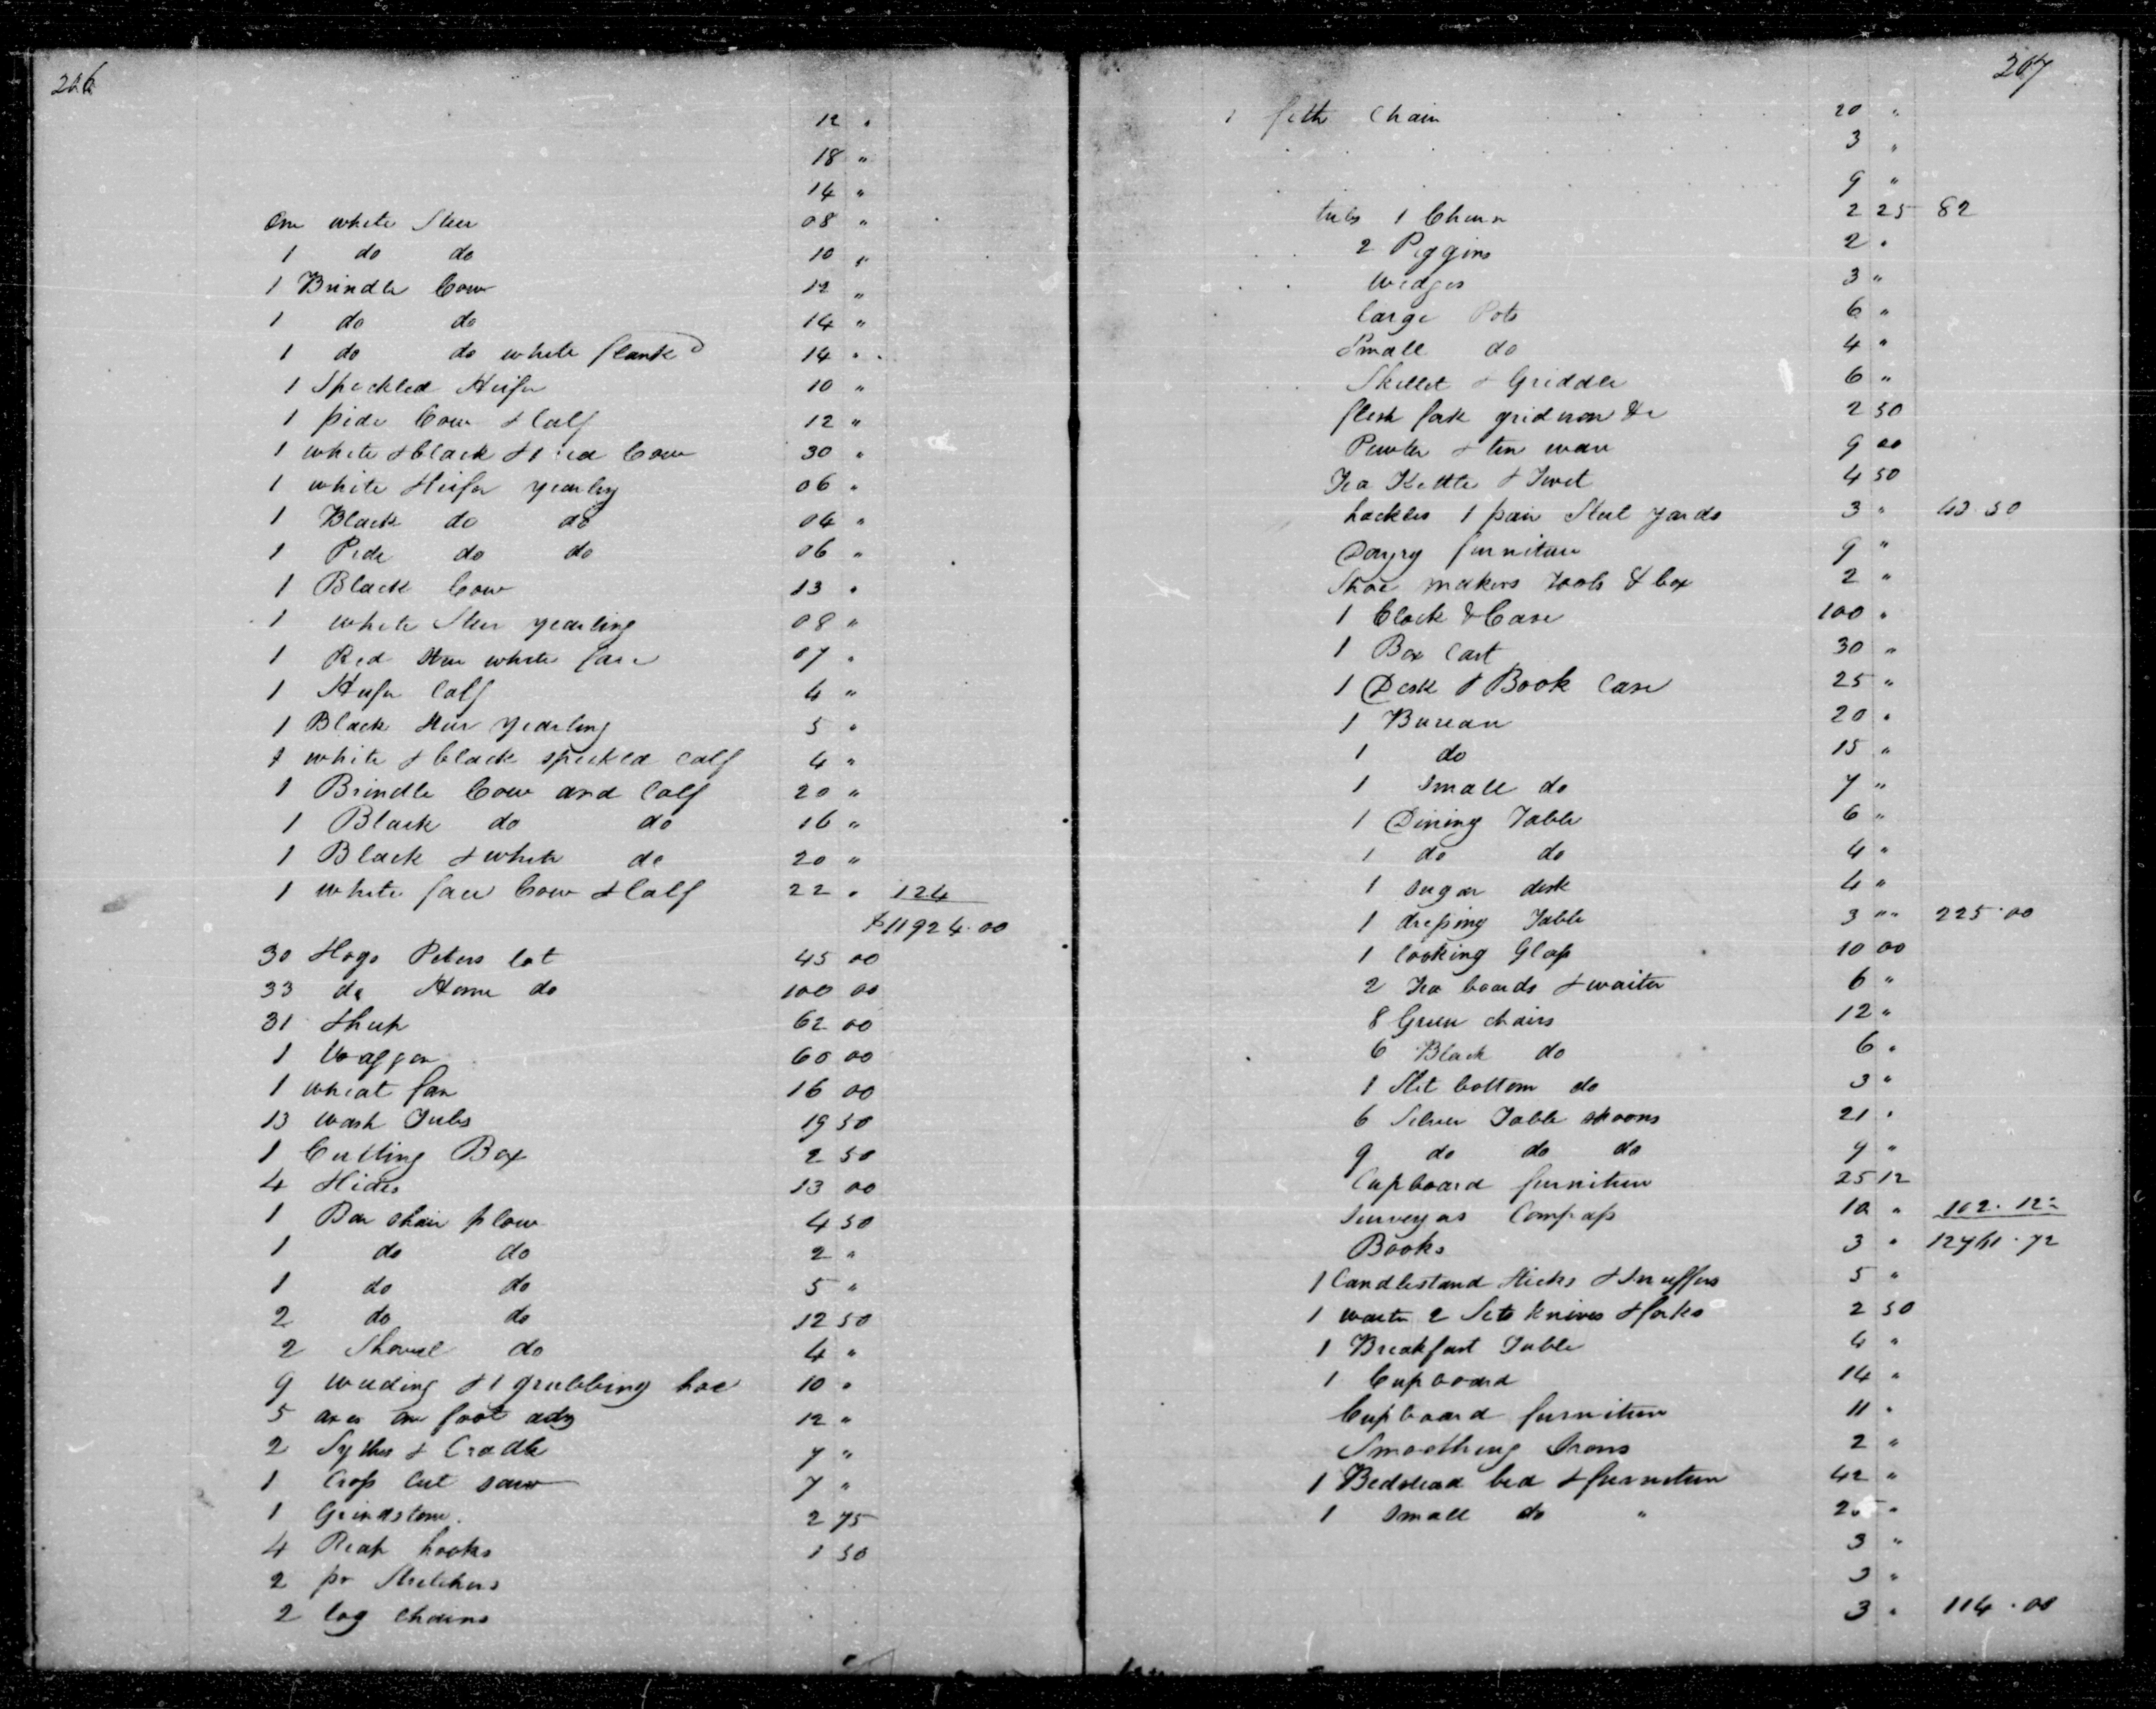 266
12 "
18 "
14 "
One white Steer 08 "
1 do do 10 "
1 Brindle Cow 12 "
1 do do 14 "
1 do do white flank 14 "
1 Speckled Heifer 10 "
1 pide Cow & Calf 12 "
1 white & black & 1 red Cow 30 "
1 white Heifer yearling 06 "
1 Black do do 04 "
1 Pide do do 06 "
1 Black Cow 13 "
1 white Steer yearling 08 "
1 Red Steer white face 07 "
1 Heifer Calf 4 "
1 Black Steer yearling 5 "
1 white & black speckled calf 4 "
1 Brindle Cow and Calf 20 "
1 Black do do 16 "
1 Black & white do 20 "
1 white face Cow & Calf 22 " 124
$11924.00
30 Hogs Peters lot 45 00
33 do Home do 100 00
31 Sheep 62 00
1 Waggon 60 00
1 wheat fan 16 00
13 wash Tubs 19 50
1 Cutting Box 2 50
4 Hides 13 00
1 Bar shair plow 4 50
1 do do 2 "
1 do do 5 "
2 do do 12 50
2 Shovel do 4 "
9 weeding & 1 grubbing hoe 10 "
5 axes one foot adz 12 "
2 Sythes & Cradle 7 "
1 Cross Cut saw 7 "
1 Grindstone 2 75
4 Reap hooks 1 50
2 pr Stretchers
2 log chains
267
1 fifth Chain 20 "
3 "
9 "
tubs 1 Churn 2 25 82
2 Piggins 2 "
wedges 3 "
large Pots 6 "
Small do 4 "
Skillet & Griddle 6 "
flesh fork gridiron &c 2 50
Pewter & tin ware 9 00
Tea Kettle & Trivet 4 50
hackles 1 pair Steel yards 3 "
Dayry furniture 9 "
Shoe makers tools & box 2 "
1 Clock & Case 100 "
1 Box Cart 30 "
1 Desk & Book Case 25 "
1 Bureau 20 "
1 do 15 "
1 small do 7 "
1 Dining Table 6 "
1 do do 4 "
1 sugar desk 4 "
1 dressing Table 3 " 225.00
1 looking Glass 10 00
2 Tea boards & waiter 6 "
8 Green chairs 12 "
6 Black do 6 "
1 Slit bottom do 3 "
6 Silver Table spoons 21 "
9 do do do 9 "
Cupboard furniture 25 12
Surveyors Compass 10 " 102.12
Books 3 " 12761.72
1 Candlestand Sticks & Snuffers 5 "
1 waiter 2 Sets knives & forks 2 50
1 Breakfast Table 4 "
1 Cupboard 14 "
Cupboard furniture 11 "
Smoothing Irons 2 "
1 Bedstead bed & furniture 42 "
1 small do " 25 "
3 "
3 "
3 " 114.00